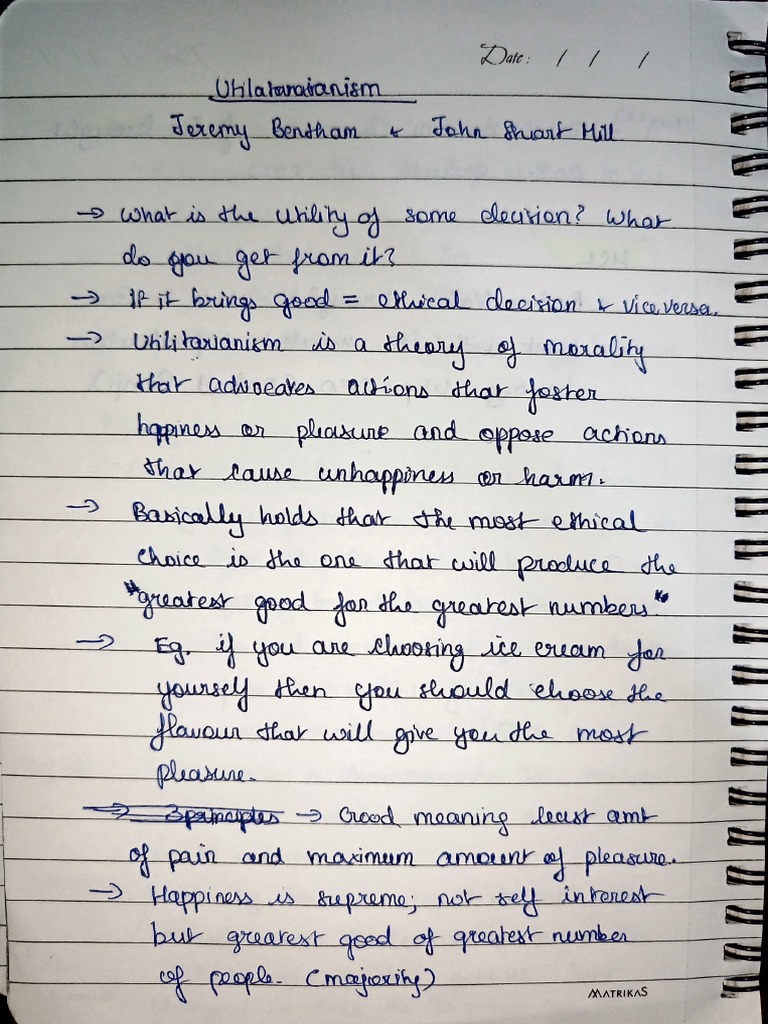 Date: / / /
Utilatararianism
Jeremy Bentham & John Stuart Mill
→ What is the utility of some decision? What
do you get from it?
→ If it brings good = ethical decision & vice versa.
→ Utilitarianism is a theory of morality
that advocates actions that foster
happiness or pleasure and oppose actions
that cause unhappiness or harm.
→ Basically holds that the most ethical
choice is the one that will produce the
"greatest good for the greatest numbers"
→ Eg. if you are choosing ice cream for
yourself then you should choose the
flavour that will give you the most
pleasure.
→ 3 principles → Good meaning least amt
of pain and maximum amount of pleasure.
→ Happiness is supreme; not self interest
but greatest good of greatest number
of people. (majority)
MATRIKAS